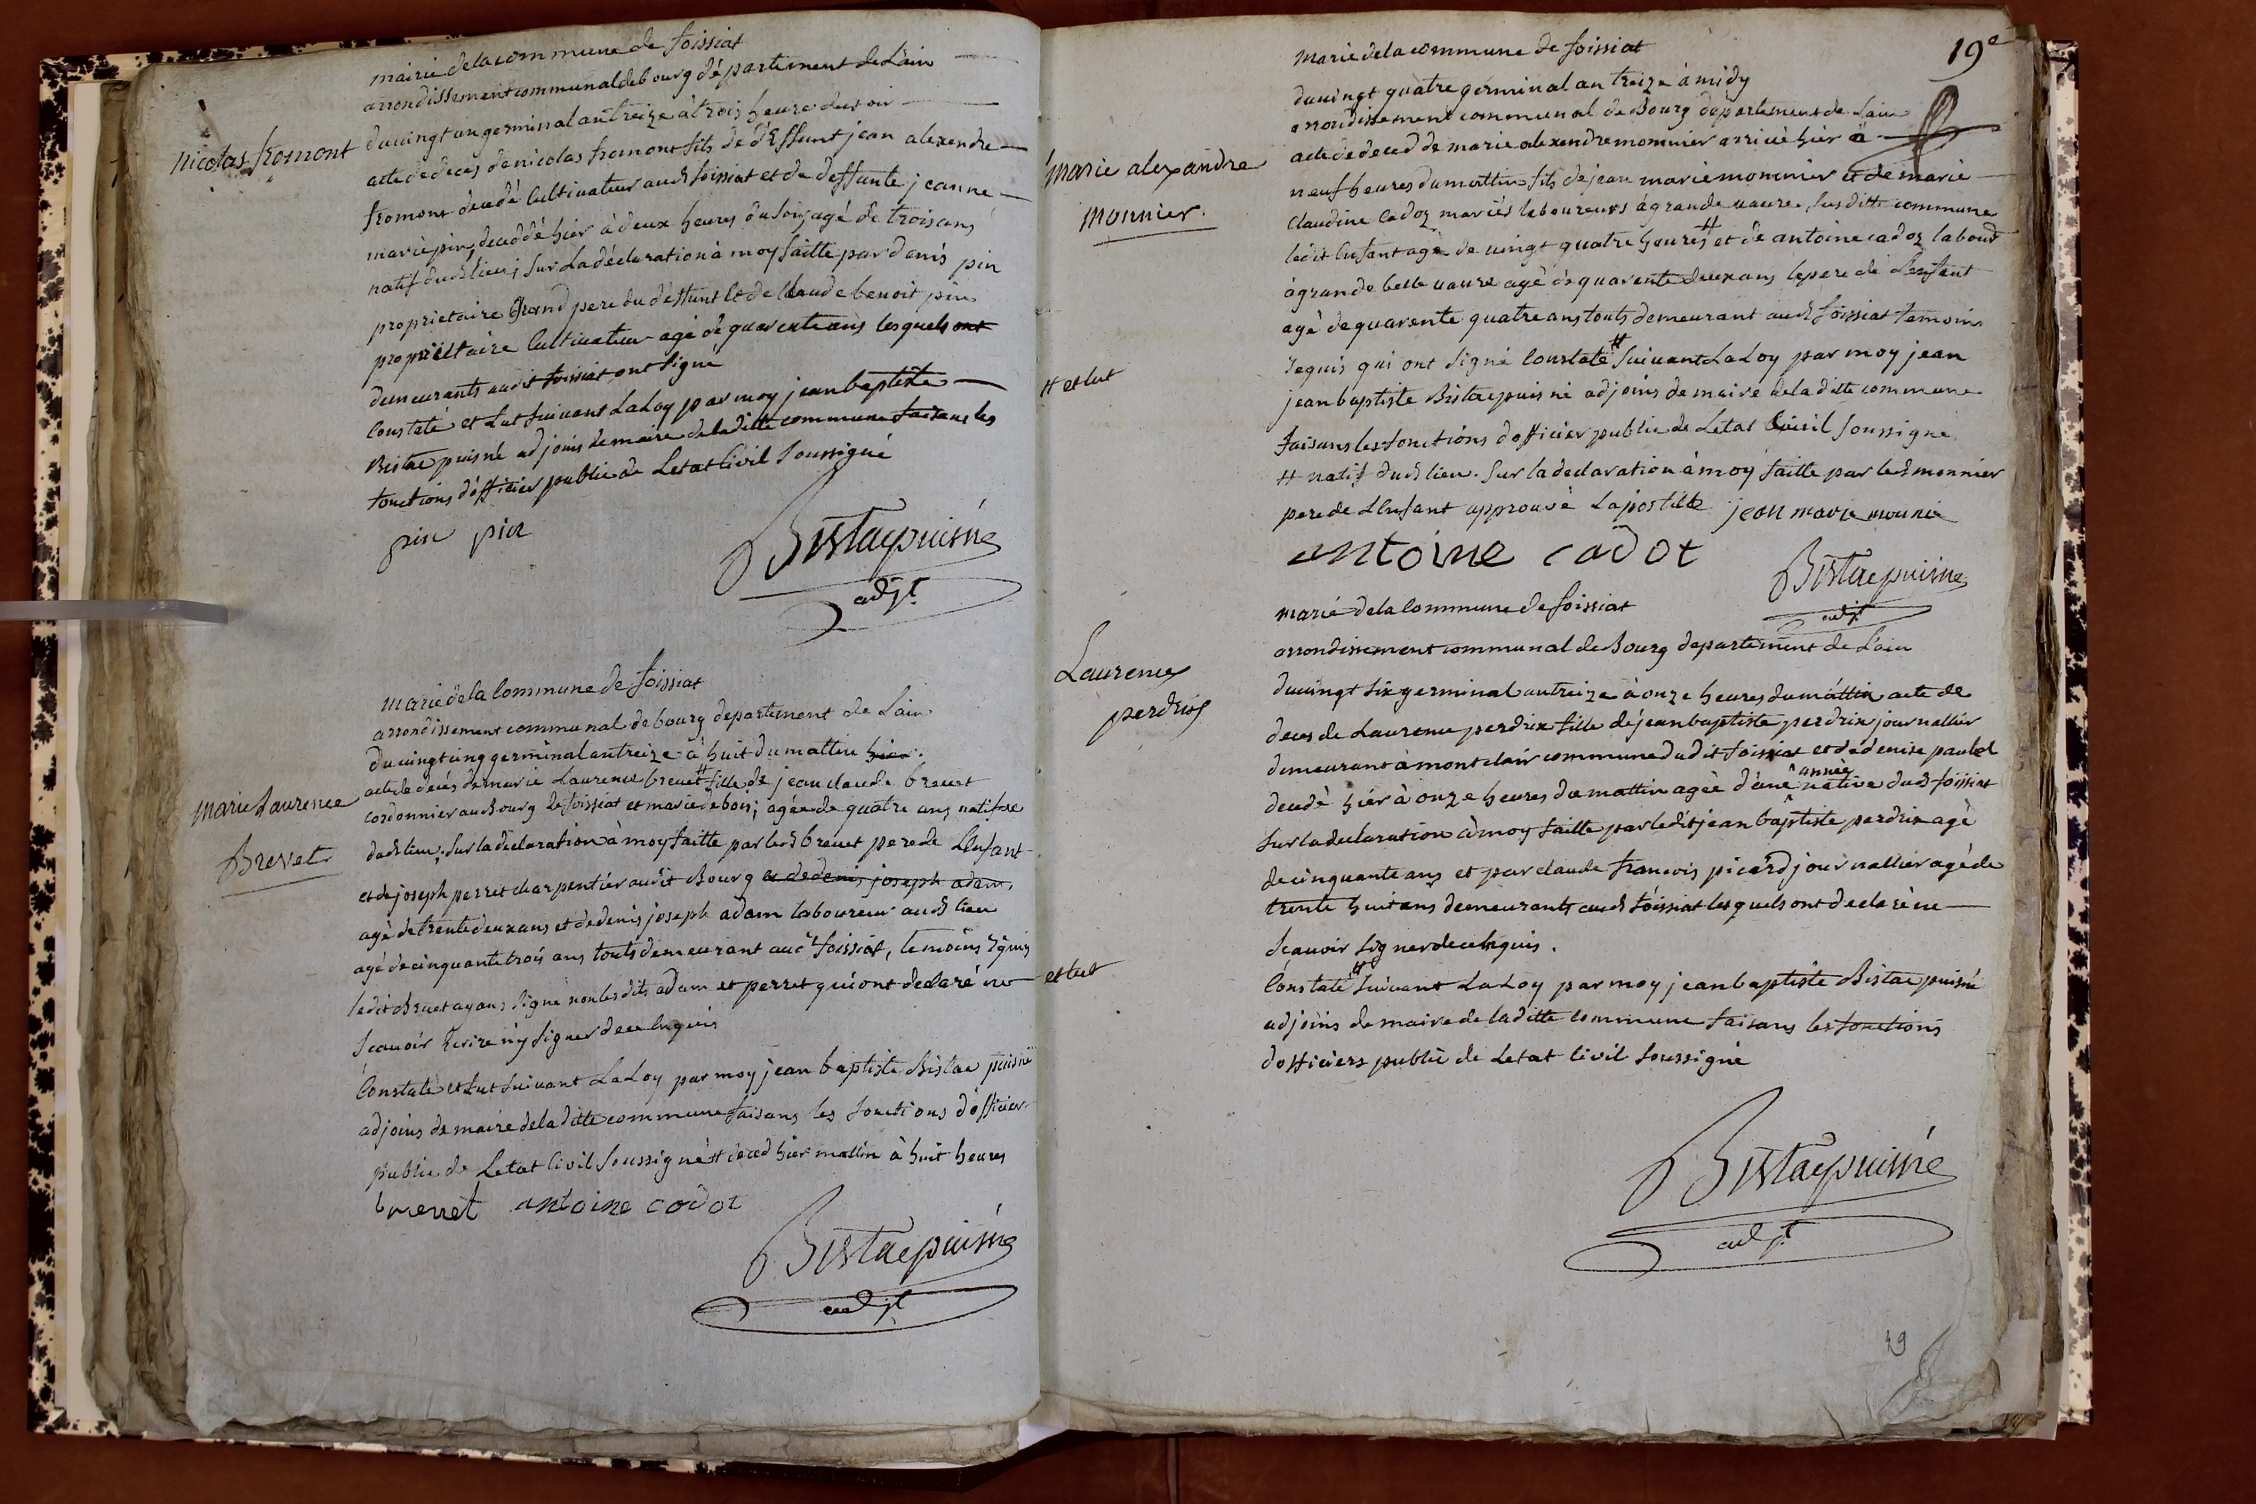 mairie de la commune de foissiat
arrondissement communal de bourg département de L'ain
du vingt un germinal an treize à trois heures du soir
Nicolas fromont
acte de decès de nicolas fromont fils de deffunt jean alexendre
fromont décedé Cultivateur aud foissiat et de deffunte jeanne
marie pin, decedé hier à deux heures du soir, agé de trois ans
natif dud lieu; sur La déclaration à moy faitte par denis pin
propriétaire Grand pere du deffunt et de Claude benoit pin
propriétaire Cultivateur agé de quarente ans lesquels ont
demeurants audit foissiat ont signé
Constaté et Lut suivant La Loy par moy jean baptiste
Bistac puisné adjoins de maire de la ditte commune faisans les
fonctions d'officier public de Letat Civil Soussigné
pin pin
Bistac puisné
adjt
marie de la Commune de foissiat
arrondissement communal de bourg departement de Lain
du vingt cinq germinal an treize à huit du mattin hier
Marie Laurence
Brevet
acte de decés de marie Laurence brevet # fille de jean claude brevet
cordonnier au Bourg de foissiat et marie debois; agée de quatre ans natifve
dud lieu; Sur la déclaration à moy faitte par led brevet pere de L'enfant
et de joseph perret charpentier audit Bourg et de denis joseph adam
agé de trente deux ans et de denis joseph adam laboureur aud lieu
agé de cinquante trois ans touts demeurant aud foissiat, temoins
ledit Brevet ayans signé non lesdits adam et perret qui ont declaré ne
scavoir Ecrire ny signer de ce Enquis
Constaté et Lut suivant La Loy par moy jean baptiste Bistac puisné
adjoins de maire de la ditte commune faisans les fonctions d'officier
public de Letat Civil Soussigné # deced hier mattin à huit heures
brevet antoine cadot
Bistac puisné
adjt
19e
Marie de la commune de foissiat
du vingt quatre germinal an treize à midy
arrondissement communal de Bourg departement de Lain
Marie alexandre
Monnier.
acte de deced de marie alexendre monnier arrivé hier à
neuf heures du mattin fils de jean marie monnier et de marie
Claudine Cadoz mariés laboureurs à grande vavre susditte commune
ledit Enfant agé de vingt quatre heures # et de antoine cadoz labour
à grande belle vavre agé de quarente deux ans le pere de L'enfant
agé de quarente quatre ans touts demeurant aud foissiat temoins
requis qui ont Signé Constaté # Suivant La Loy par moy jean
# et lut
jean baptiste Bistac puisné adjoins de maire de la ditte commune
faisans les fonctions d'officier public de Letat Civil Soussigné
# natif dud lieu. Sur la declaration à moy faitte par led monnier
pere de L'Enfant approuvé Lapostille jean marie mounie
antoine cadot
Bistac puisné
adjt
marie de la Commune de foissiat
arrondissement communal de Bourg departement de Lain
Laurence
perdrix
du vingt six germinal an treize à onze heures du mattin acte de
deces de Laurence perdrix fille de jean baptiste perdrix journallier
demeurant à montclair commune dudit foissiat et de denise paubel
decedé hier à onze heures du mattin agée d'une année native dud foissiat
Sur la declaration à moy faitte par ledit jean baptiste perdrix agé
de cinquante ans et par claude francois picard journallier agé de
trente huit ans demeurants aud foissiat lesquels ont declaré ne
scavoir signer de ce Enquis.
et lut
Constaté # Suivant La Loy par moy jean baptiste Bistac puisné
adjoins de maire de la ditte commune faisans les fonctions
d'officiers public de Letat Civil Soussigné
Bistac puisné
adjt